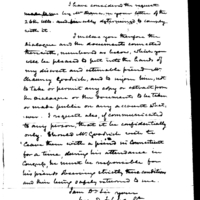 I have considered the request
made to me by Mr. in your letter of the
26th ulto. and determined to comply
with it.
I inclose you therefore the
Dialogue and the documents connected
therewith, numbered as below, which you
will be pleased to put into the hands of
my discreet and estimable friend
Chauncey Goodrich, and to enjoin him, not
to take or permit any copy or extract from
the Dialogue or the documents to be taken
or made public on any account what
ever. I request also, if communicated
to any person, that it be confidentially
only. Should Mr. Goodrich wish to
leave them with a friend in Connecticut
for a time during his attendance in
Congress, he must be responsible for
his friends observing strictly these conditions
and their being safely returned to me
I am Dr Sir your